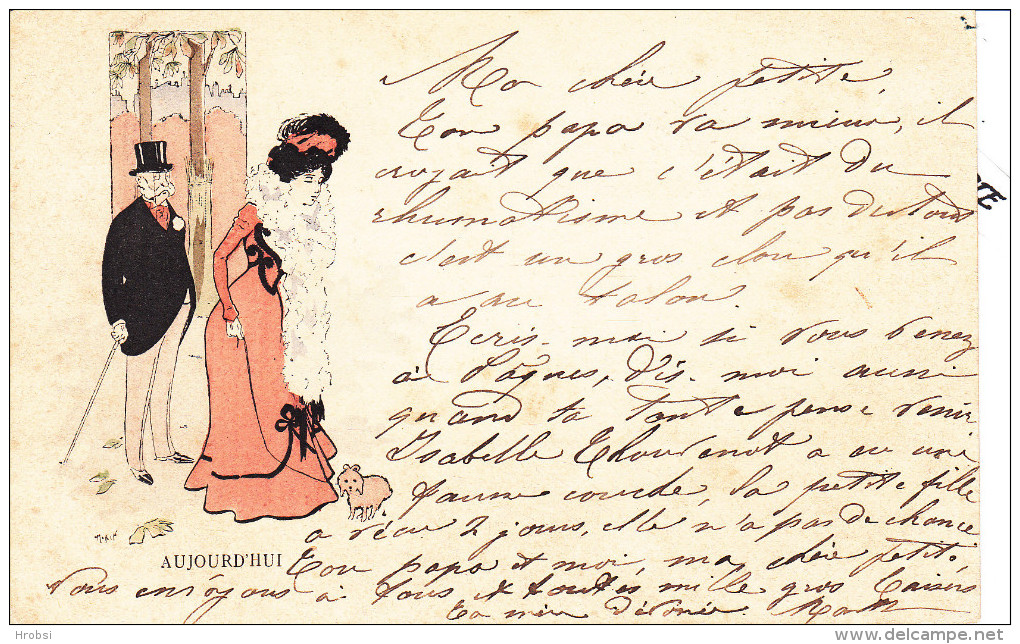 Ma chère petite,
Ton papa va mieux, il
croyait que c'était du
rhumatisme et pas du tout
c'est un gros clou qu'il
a au talon.
Ecris-moi si vous venez
à Pâques, dis-moi aussi
quand ta tante pense venir
Isabelle a eu une
fausse couche, la petite fille
a vécu 2 jours, elle n'a pas de chance
Ton papa et moi, ma chère petite
vous envoyons à tous & toutes mille gros baisers
Ta mère dévouée.
AUJOURD'HUI
Hrobsi
delcampe.net